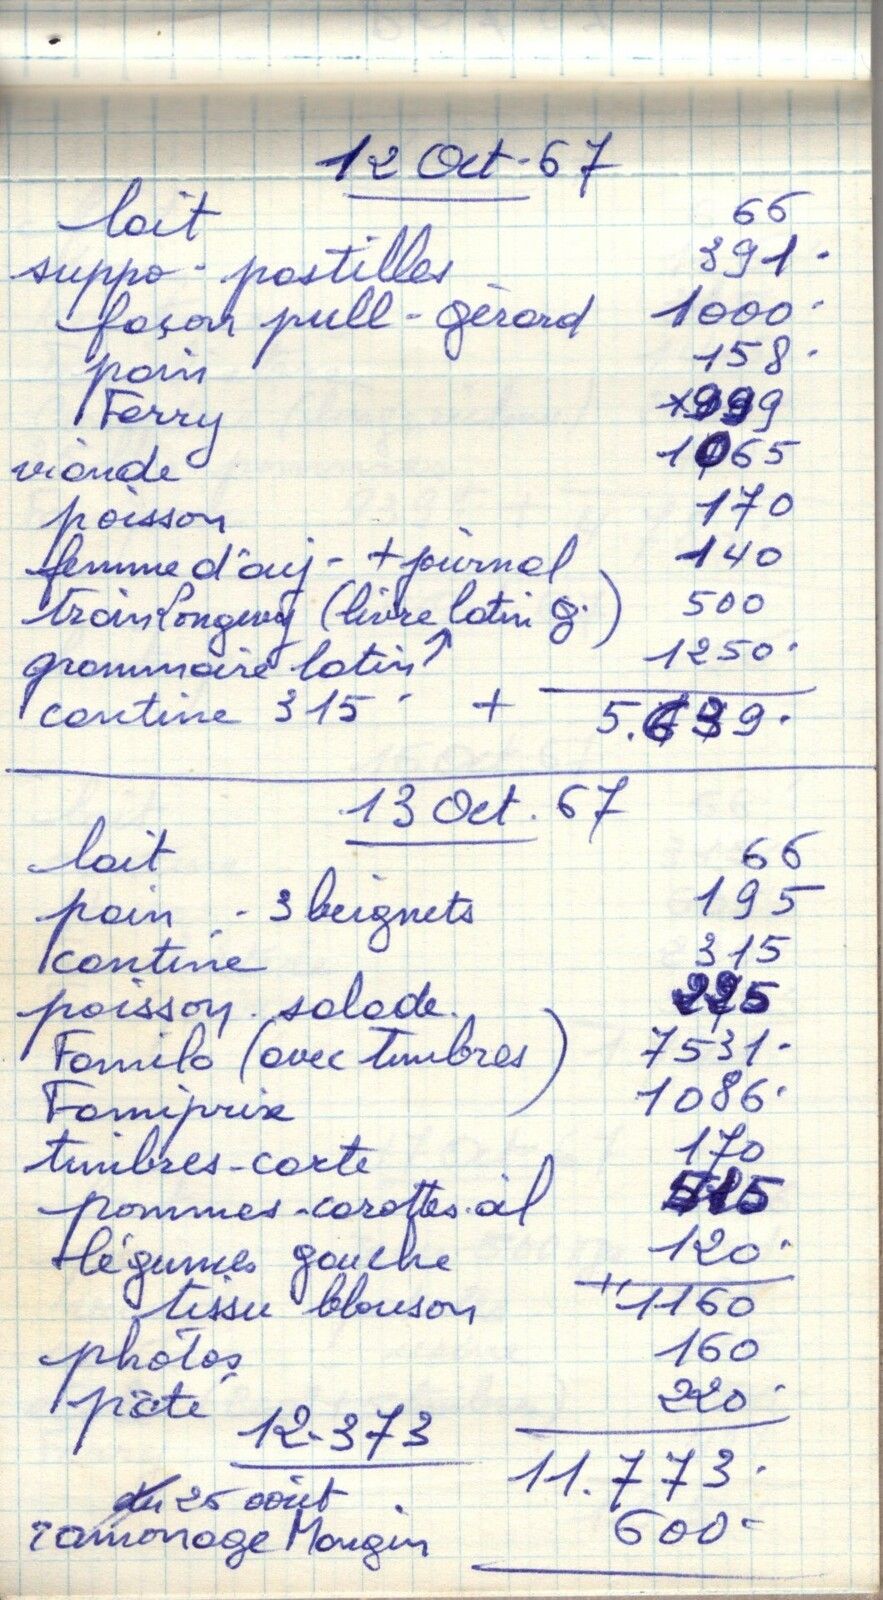 12 Oct. 67
lait 66
suppo - pastilles 391.
façon pull - gérard 1000.
pain 158.
Ferry 999
viande 1065
poisson 170
femme d'auj - + journal 140
train Longwy (livre latin g.) 500
grammaire latin ↑ 1250.
cantine 315 + 5.639.
13 Oct. 67
lait 66
pain - 3 beignets 195
cantine 315
poisson. salade. 225
Familo (avec timbres) 7531.
Famiprix 1086.
timbres-carte 170
pommes-carottes-ail 515
légumes gauche 120.
tissu blouson + 1160
photos 160
pâté 220.
12.373 11.773.
du 25 août
ramonage Mougin 600-